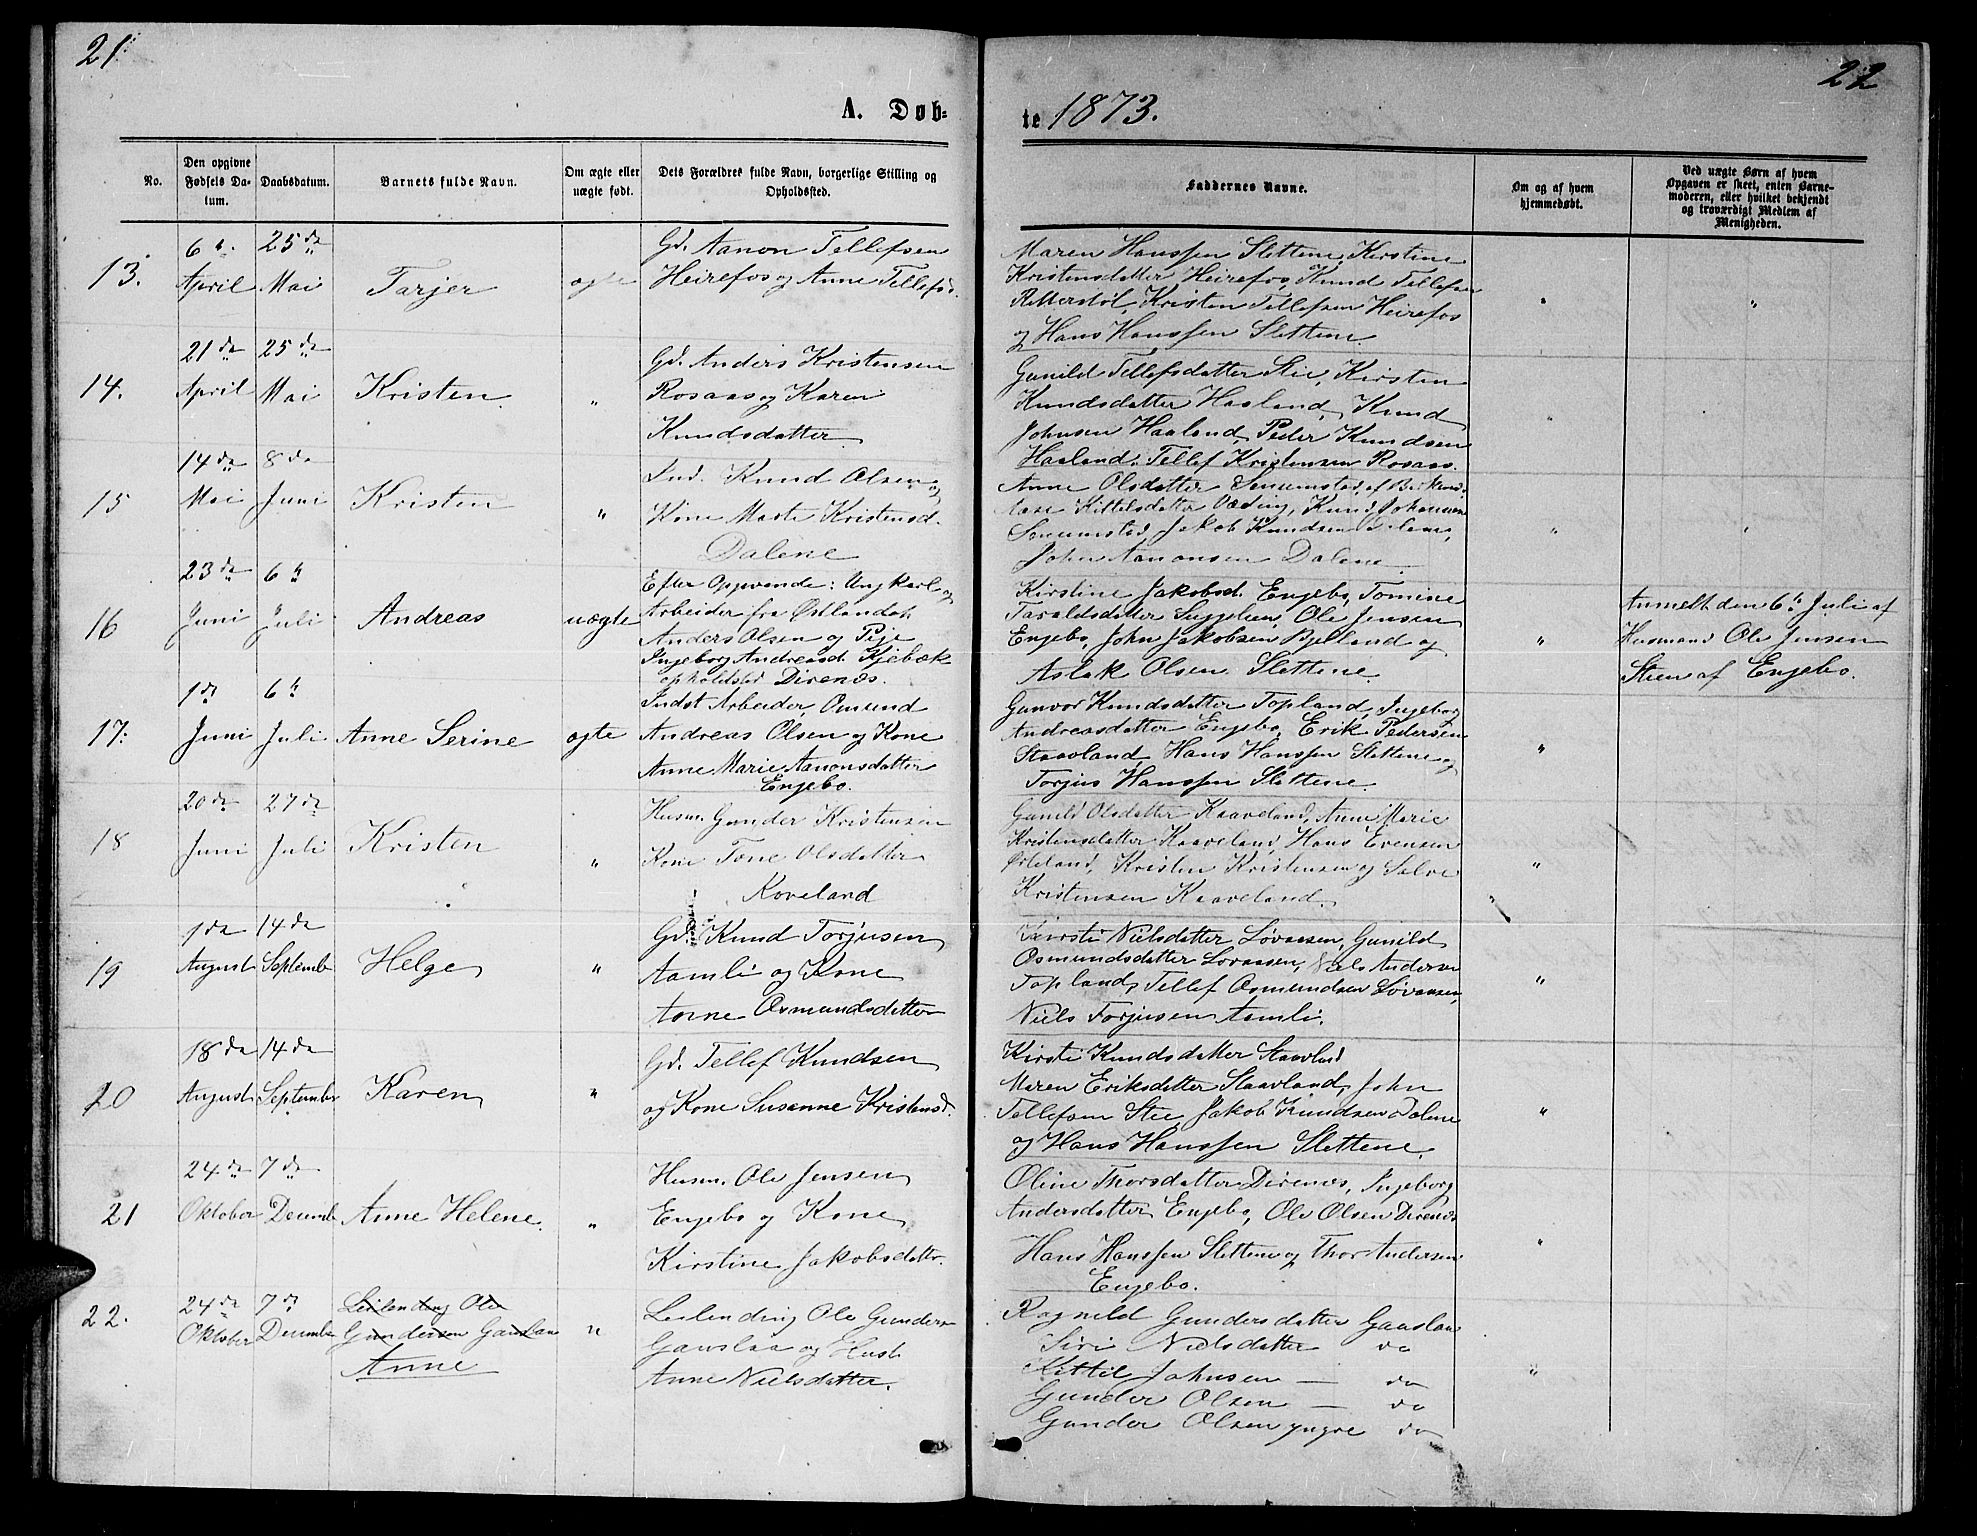 21
22
A. Døb-
te 1873.
No.
Den opgivne
Fødsels Da-
tum.
Daabsdatum.
Barnets fulde Navn.
Om ægte eller
uægte født.
Dets Forældres fulde Navn, borgerlige Stilling og
Opholdssted.
Faddernes Navne.
Om og af hvem
hjemmedøbt.
Ved uægte Børn af hvem
Opgaven er skeet, enten Barne-
moderen, eller hvilket bekjendt
og troværdigt Medlem af
Menigheden.
13.
6te
April
25de
Mai
Tarjer
ægte
Gd. Aanon Tellefsen
Heirefos og Anne Tellefsd.
Maren Hanssen Slettene, Kirstine
Kristensdatter Heirefos, Knud Tellefsen
Retterstöl, Kristen Tellefsen Heirefos
og Hans Hanssen Slettene.
"
"
14.
21de
April
25de
Mai
Kristen
"
Gd. Anders Kristensen
Rosaas og Karen
Knudsdatter
Gunild Tellefsdatter Stie, Kirsten
Knudsdatter Haaland, Knud
Johnsen Haaland, Peder Knudsen
Haaland, Tellef Kristensen Rosaas.
"
15
14de
Mai
8de
Juni
Kristen
"
Ind. Knud Olsen og
Kone Marte Kristensd.
Dalene
Anne Olsdatter Senumstad, af Birkenes
Aase Kittelsdatter Væding, Knud Johnsen
Senumstad, Jakob Knudsen Dalene,
John Aanonsen Dalene
"
"
16
23de
Juni
6te
Juli
Andreas
uægte
Efter Opgivende: Ungkarl og
Arbeider fra Østlandet
Anders Olsen og Pige
Ingeborg Andreasd. Kjebæk
opholdsted Direnæs.
Kirstine Jakobsd. Engebo, Tomine
Taraldsdatter Suggelien, Ole Jensen
Engebo, John Jakobsen Bjelland og
Aslak Olsen Slettene
"
Anmelt den 6te Juli af
Husmand Ole Jensen
Stien af Engebo.
17.
1de
Juni
6te
Juli
Anne Serine
ægte
Indst Arbeider, Omund
Andreas Olsen og Kone
Anne Marie Aanonsdatter
Engebo.
Gunvor Knudsdatter Topland, Ingeborg
Andreasdatter Engebo, Erik Pedersen
Staavland, Hans Hanssen Slettene og
Torjus Hanssen Slettene.
"
18
20de
Juni
27de
Juli
Kristen
"
Husm. Gunder Kristensen
Kone Tone Olsdatter
Koveland
Gunild Olsdatter Kaaveland, Anne Marie
Kristensdatter Kaaveland, Hans Evensen
Østeland, Kristen Kristensen og Salve
Kristensen Kaaveland.
"
19
1de
August
14de
September
Helge
"
Gd. Knud Torjusen
Aamli og Kone
Anne Osmundsdatter
Kirsti Nielsdatter Løvaasen, Gunild
Osmundsdatter Løvaasen, Niels Andersen
Topland, Tellef Osmundsen Løvaasen,
Niels Torjusen Aamli.
"
20
18de
August
14de
September
Karen
"
Gd. Tellef Knudsen
og Kone Susanne Kristensd.
Kirsti Knudsdatter Staavland
Maren Eriksdatter Staavland, John
Tellefsen Stie, Jakob Knudsen Dalene
og Hans Hanssen Slettene.
"
21
24de
Oktober
7de
Decembr
Anne Helene.
"
Husm. Ole Jensen
Engebo og Kone
Kirstine Jakobsdattr.
Oline Thorsdatter Direnæs, Ingeborg
Andersdatter Engebo, Ole Olsen Direnæs
Hans Hanssen Slettene og Thor Andersen
Engebo.
"
22.
24de
Oktober
7de
December
Leilending Ole
Gundersen Gauslaa
Anne
"
Leilending Ole Gunders-
Gauslaa og Hust.
Anne Nielsdatter.
Ragnild Gundersdatter Gauslaa
Siri Nielsdatter do
Kittil Johnsen — do
Gunder Olsen — do
Gunder Olsen yngre do
"